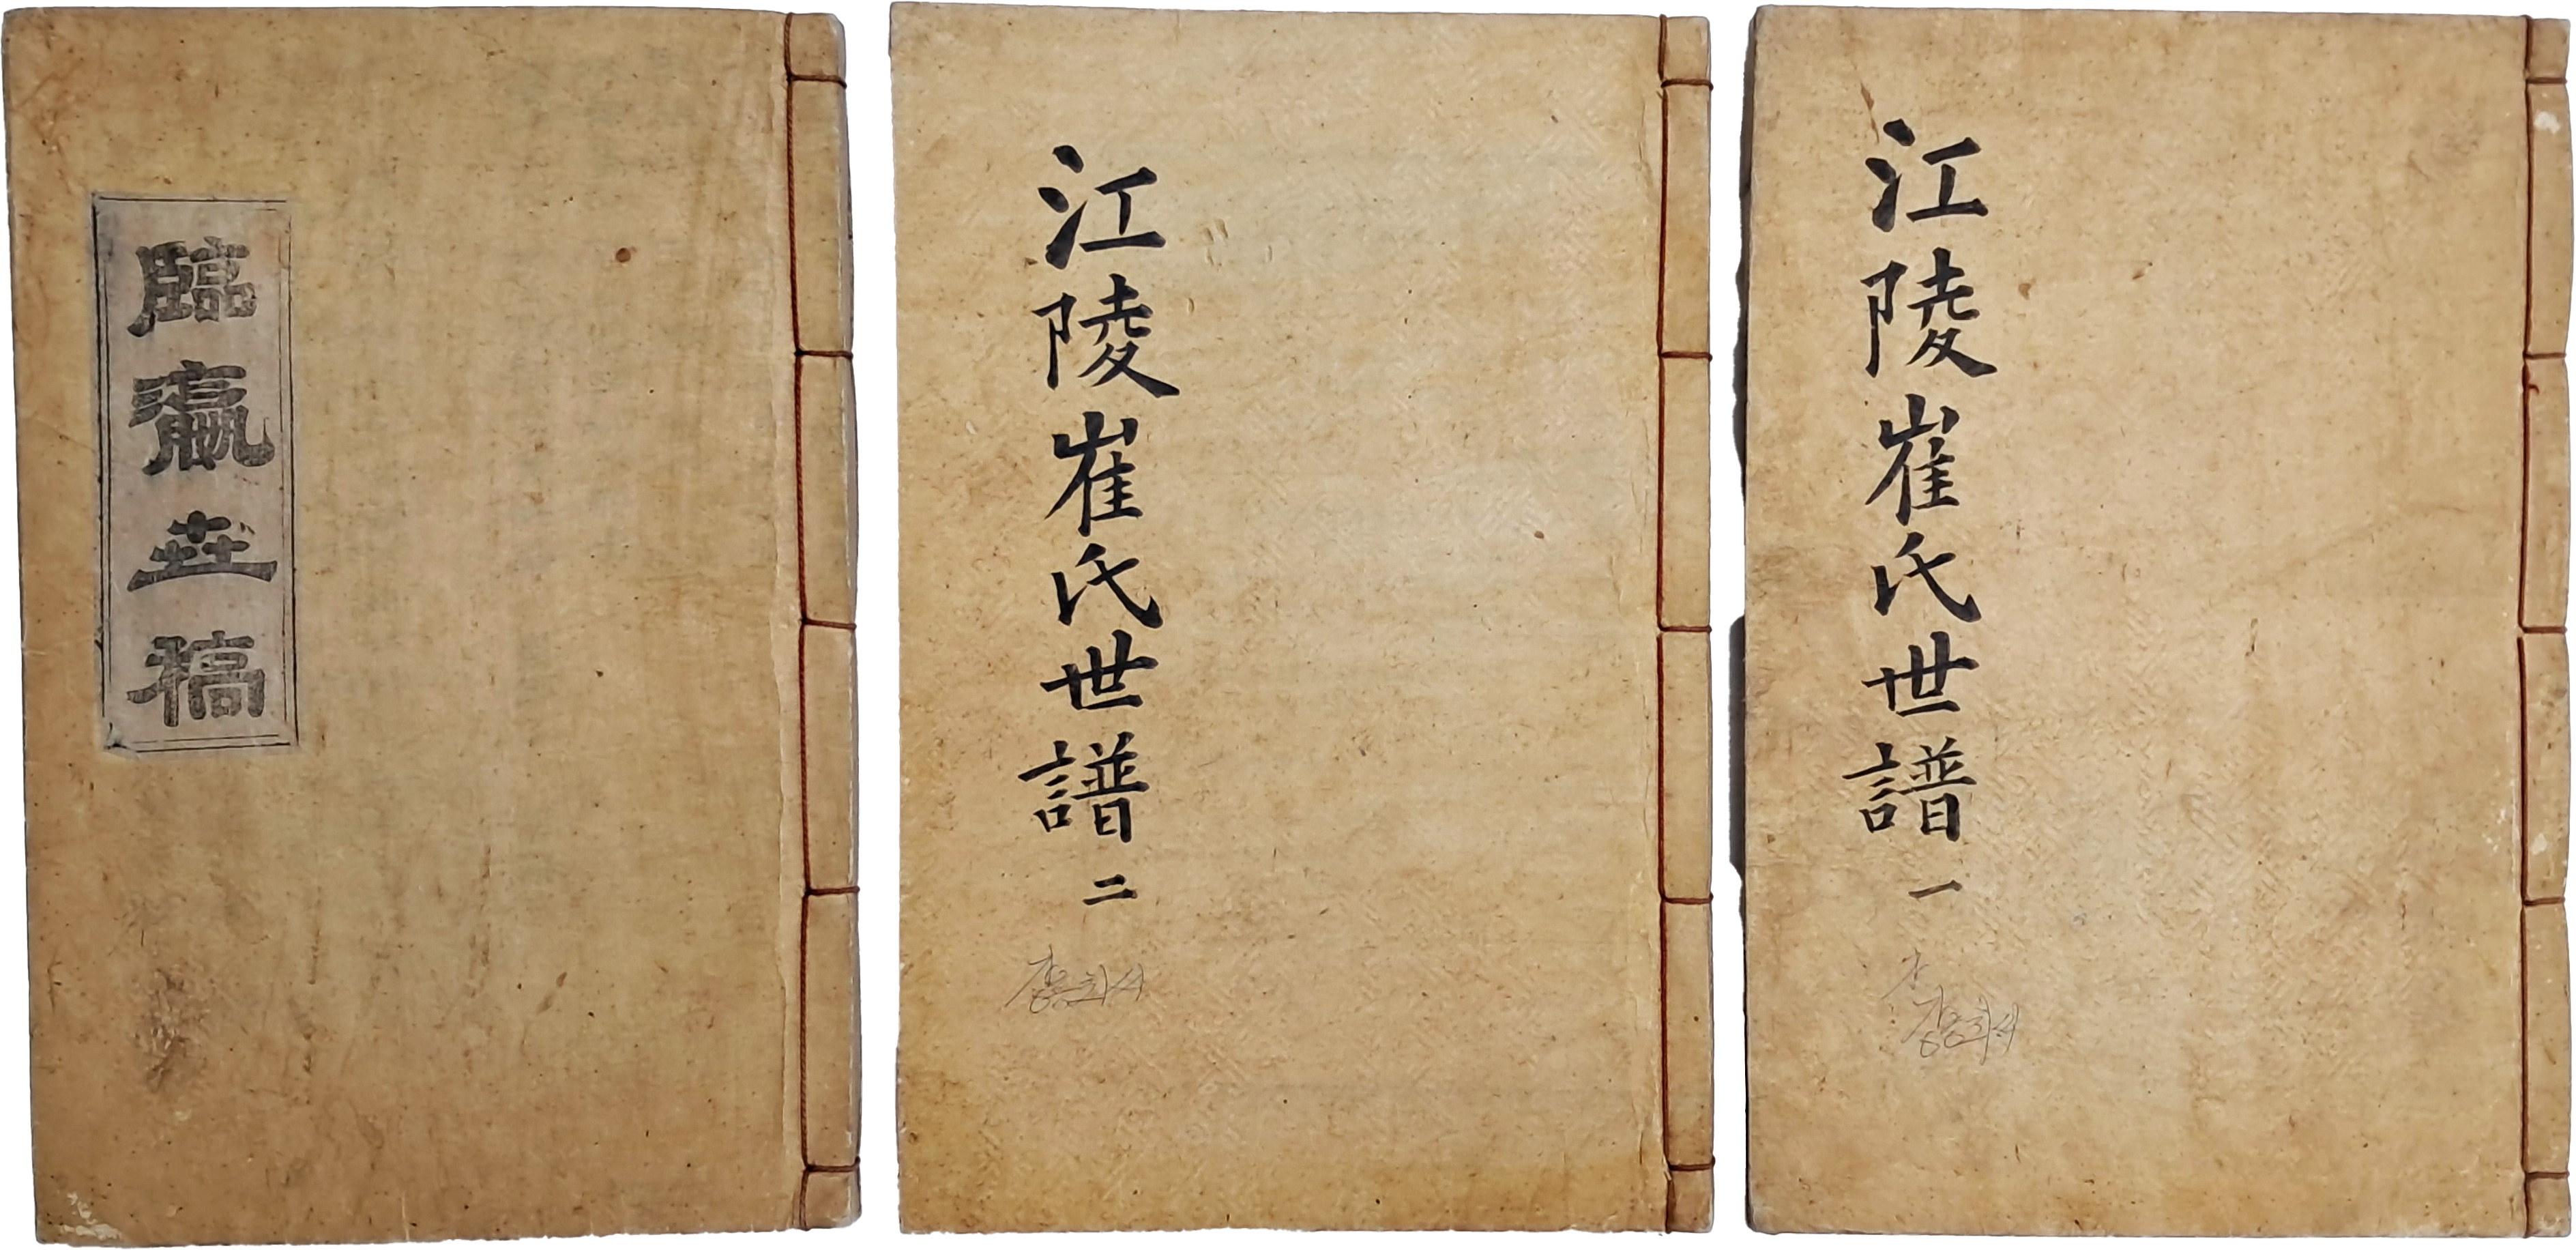 江陵崔氏世譜 一
江陵崔氏世譜 二
臨瀛世稿